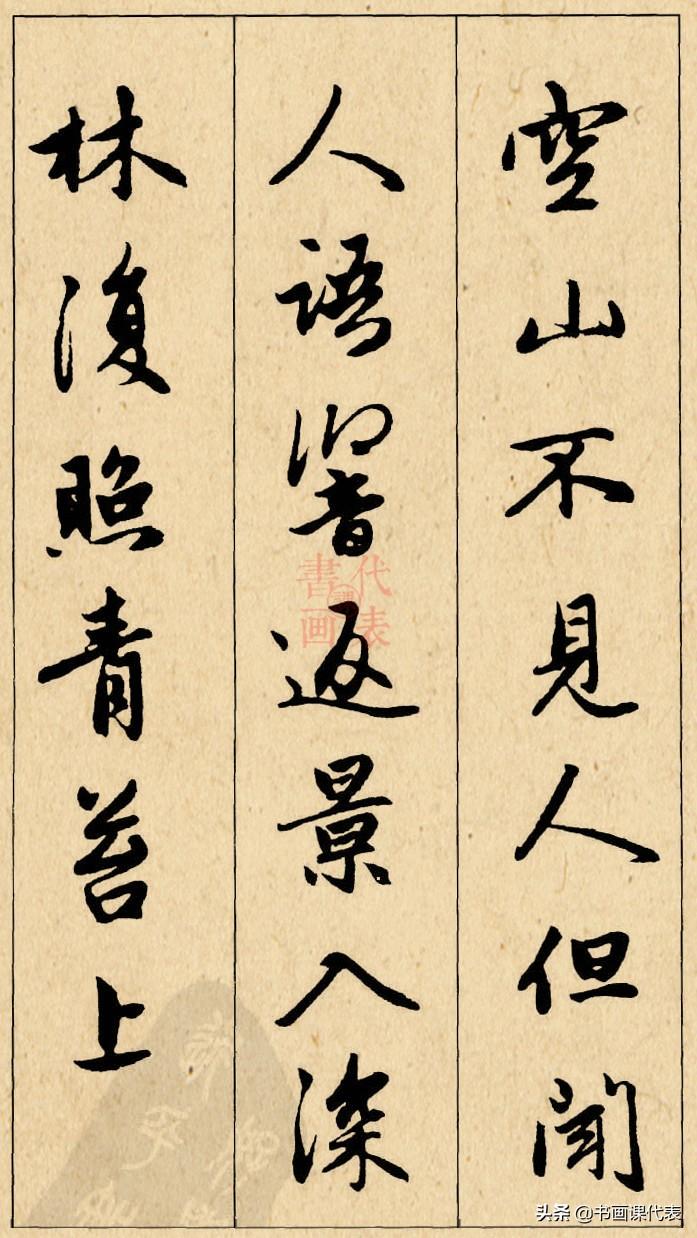 空山不見人但聞
人語響返景入深
林復照青苔上
書代
課
画表
头条 @书画课代表